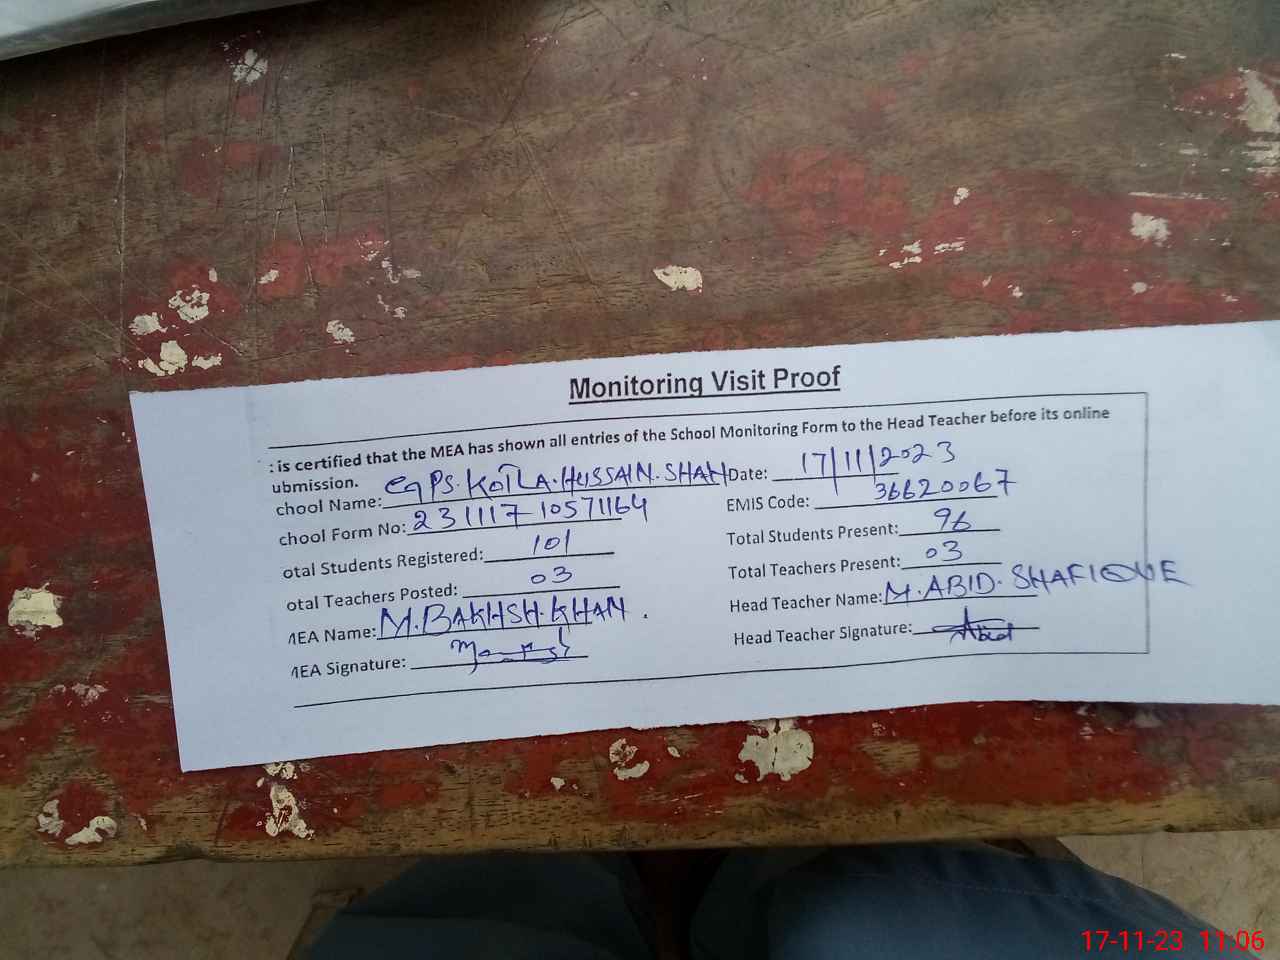 Monitoring Visit Proof
: is certified that the MEA has shown all entries of the School Monitoring Form to the Head Teacher before its online
ubmission.
chool Name: GPS. KOTLA. HUSSAIN. SHAH Date: 17/11/2023
chool Form No: 231117-10571164 EMIS Code: 36620067
otal Students Registered: 101 Total Students Present: 96
otal Teachers Posted: 03 Total Teachers Present: 03
MEA Name: M. BAKHSH. KHAN. Head Teacher Name: M. ABID. SHAFIQUE
MEA Signature: Head Teacher Signature: Abid
17-11-23 11:06